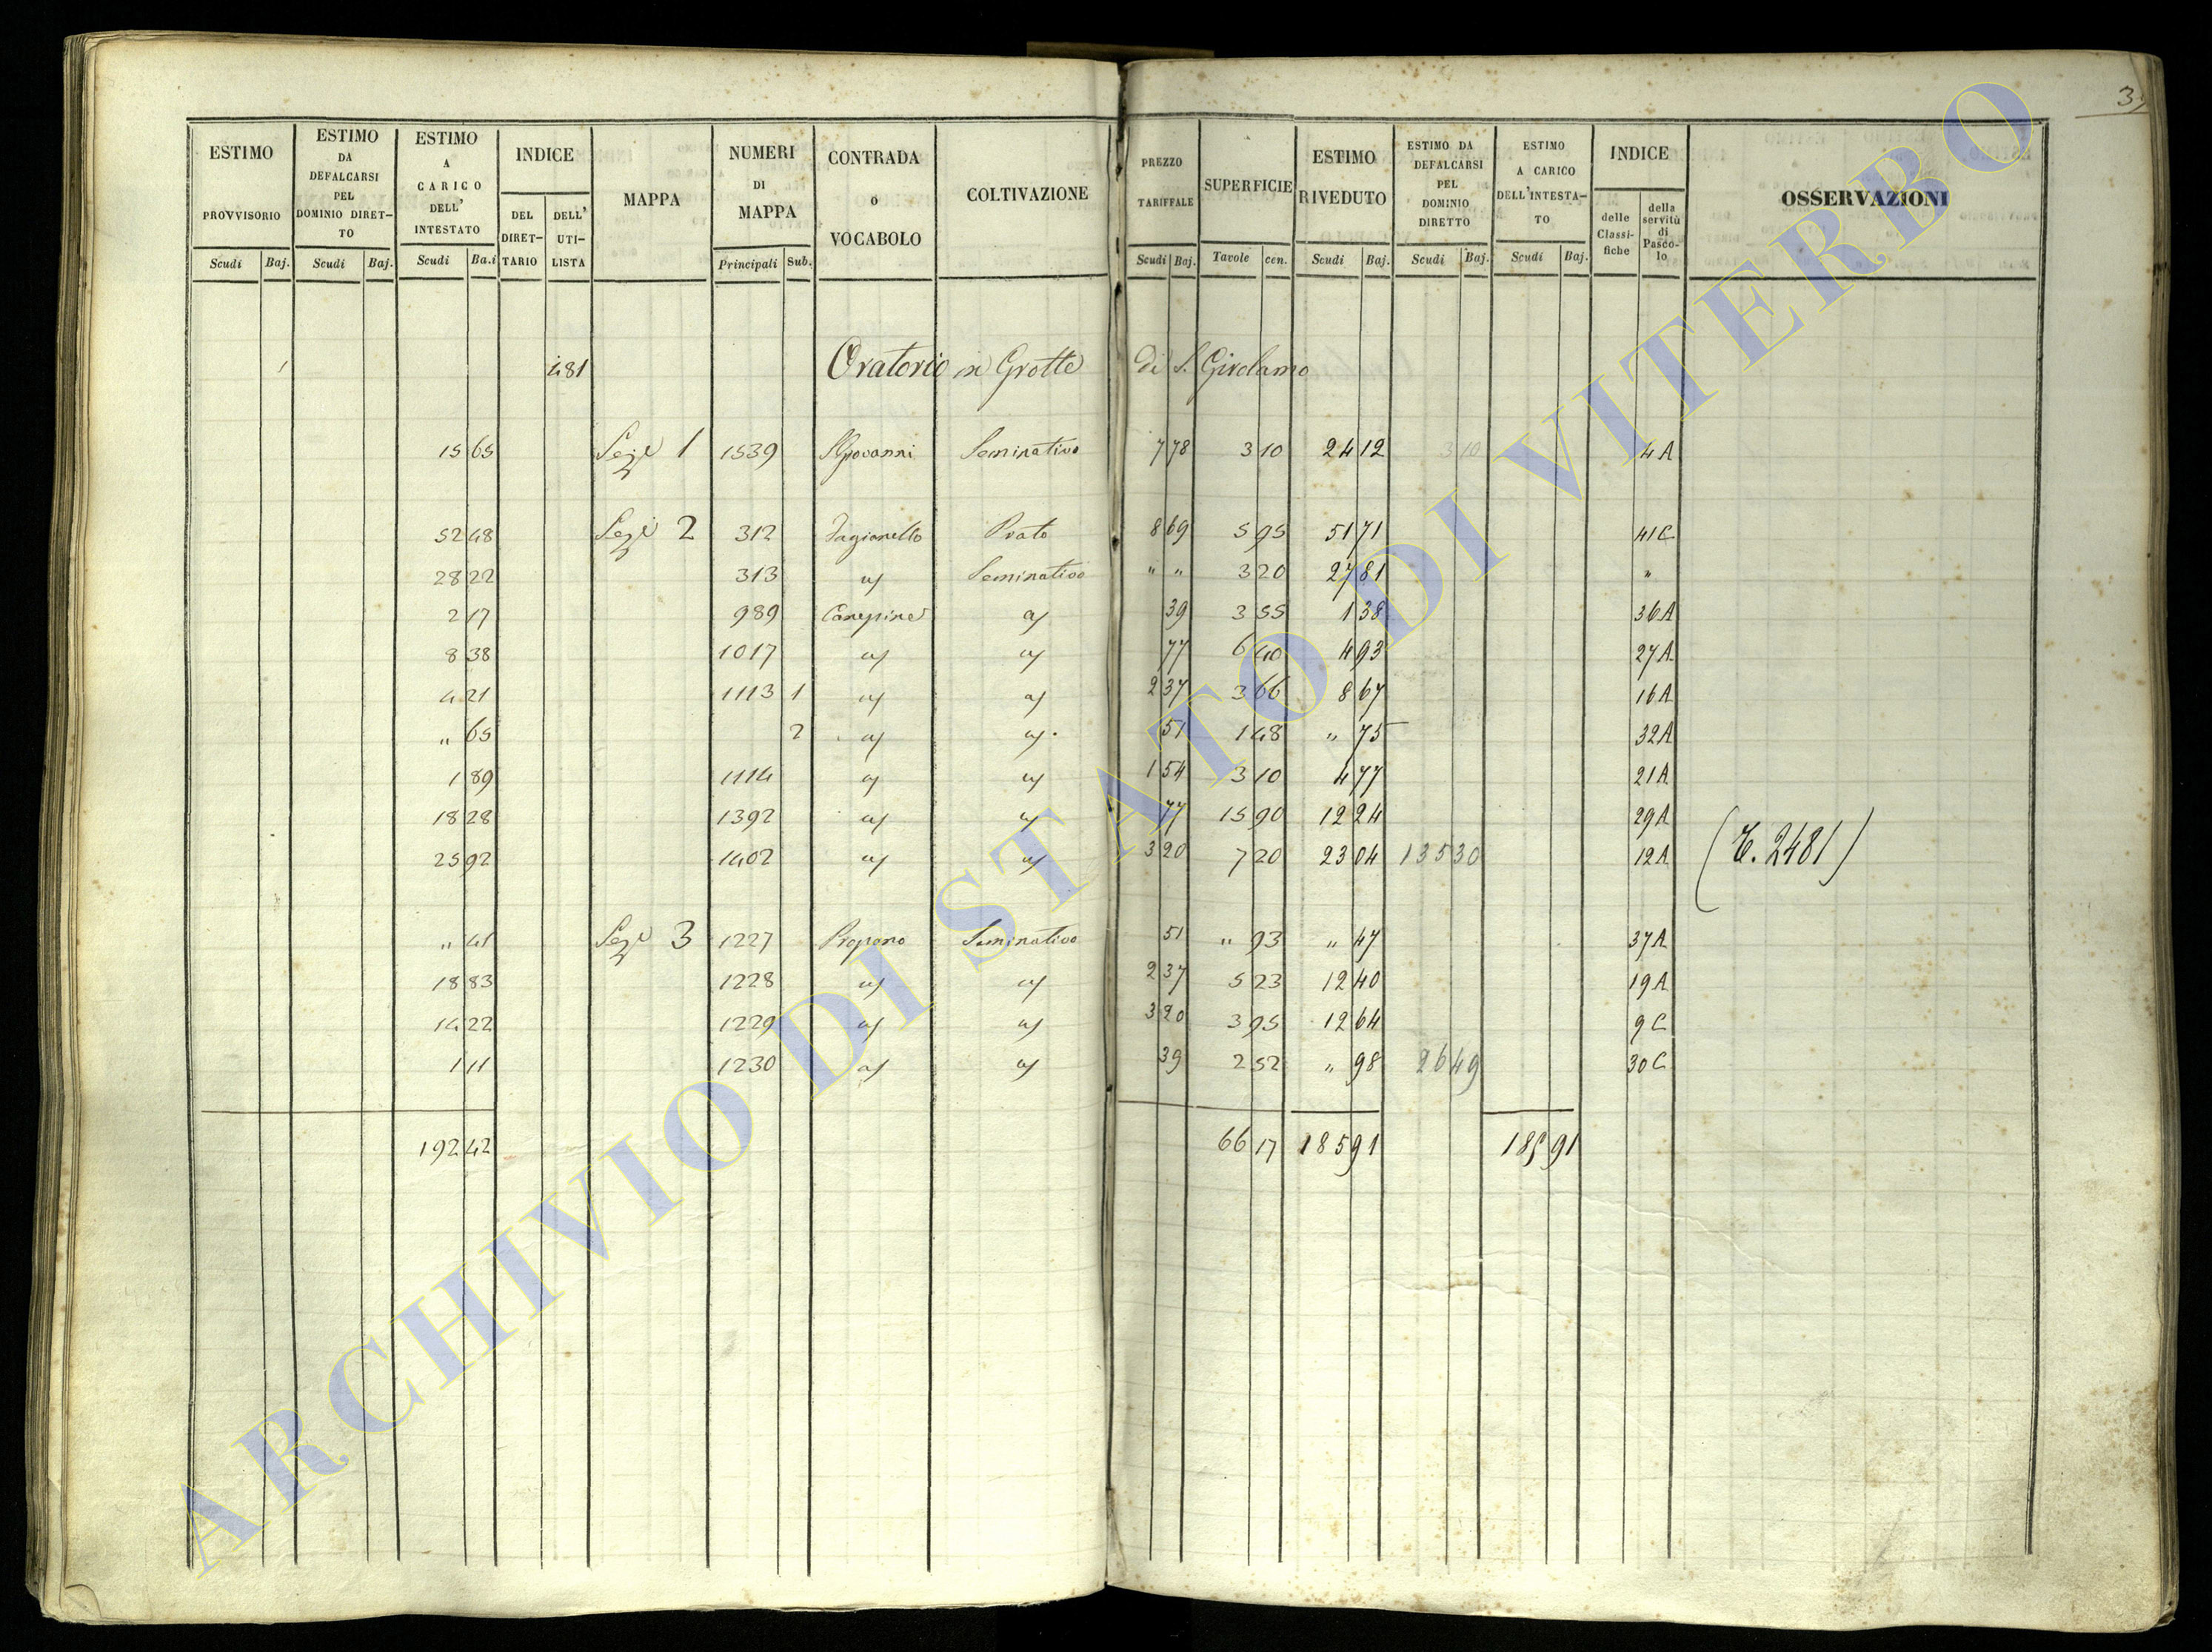 3
ESTIMO PROVVISORIO
ESTIMO DA DEFALCARSI PEL DOMINIO DIRETTO
ESTIMO A CARICO DELL' INTESTATO
INDICE
DEL DIRETTARIO
DELL' UTILISTA
MAPPA
NUMERI DI MAPPA
CONTRADA o VOCABOLO
COLTIVAZIONE
PREZZO TARIFFALE
SUPERFICIE
ESTIMO RIVEDUTO
ESTIMO DA DEFALCARSI PEL DOMINIO DIRETTO
ESTIMO A CARICO DELL'INTESTATO
INDICE
delle Classifiche
della servitù di Pascolo
OSSERVAZIONI
Scudi Baj. Scudi Baj. Scudi Ba.i Principali Sub. Scudi Baj. Tavole cen. Scudi Baj. Scudi Baj. Scudi Baj.
481 Oratorio in Grotte di S. Girolamo
15 65 Sez.e 1 1539 S Giovanni Seminativo 7 78 3 10 24 12 3 10 4 A
52 48 Sez.e 2 312 Prato 8 69 5 95 51 71 41 C
28 22 313 aj Seminativo " " 3 20 27 81 "
2 17 989 Canepine aj 39 3 55 1 38 36 A
8 38 1017 aj aj 77 6 40 4 93 27 A
4 21 1113 1 aj aj 2 37 3 66 8 67 16 A
" 65 2 aj aj 51 1 48 " 75 32 A
1 89 1114 aj aj 1 54 3 10 4 77 21 A
18 28 1392 aj aj 77 15 90 12 24 29 A
25 92 1402 aj aj 3 20 7 20 23 04 135 30 12 A (T. 2481)
" 41 Sez.e 3 1227 Propano Seminativo 51 " 93 " 47 37 A
18 83 1228 aj aj 2 37 5 23 12 40 19 A
14 22 1229 aj aj 3 20 3 95 12 64 9 C
1 11 1230 aj aj 39 2 52 " 98 26 49 30 C
192 42 66 17 185 91 185 91
ARCHIVIO DI STATO DI VITERBO